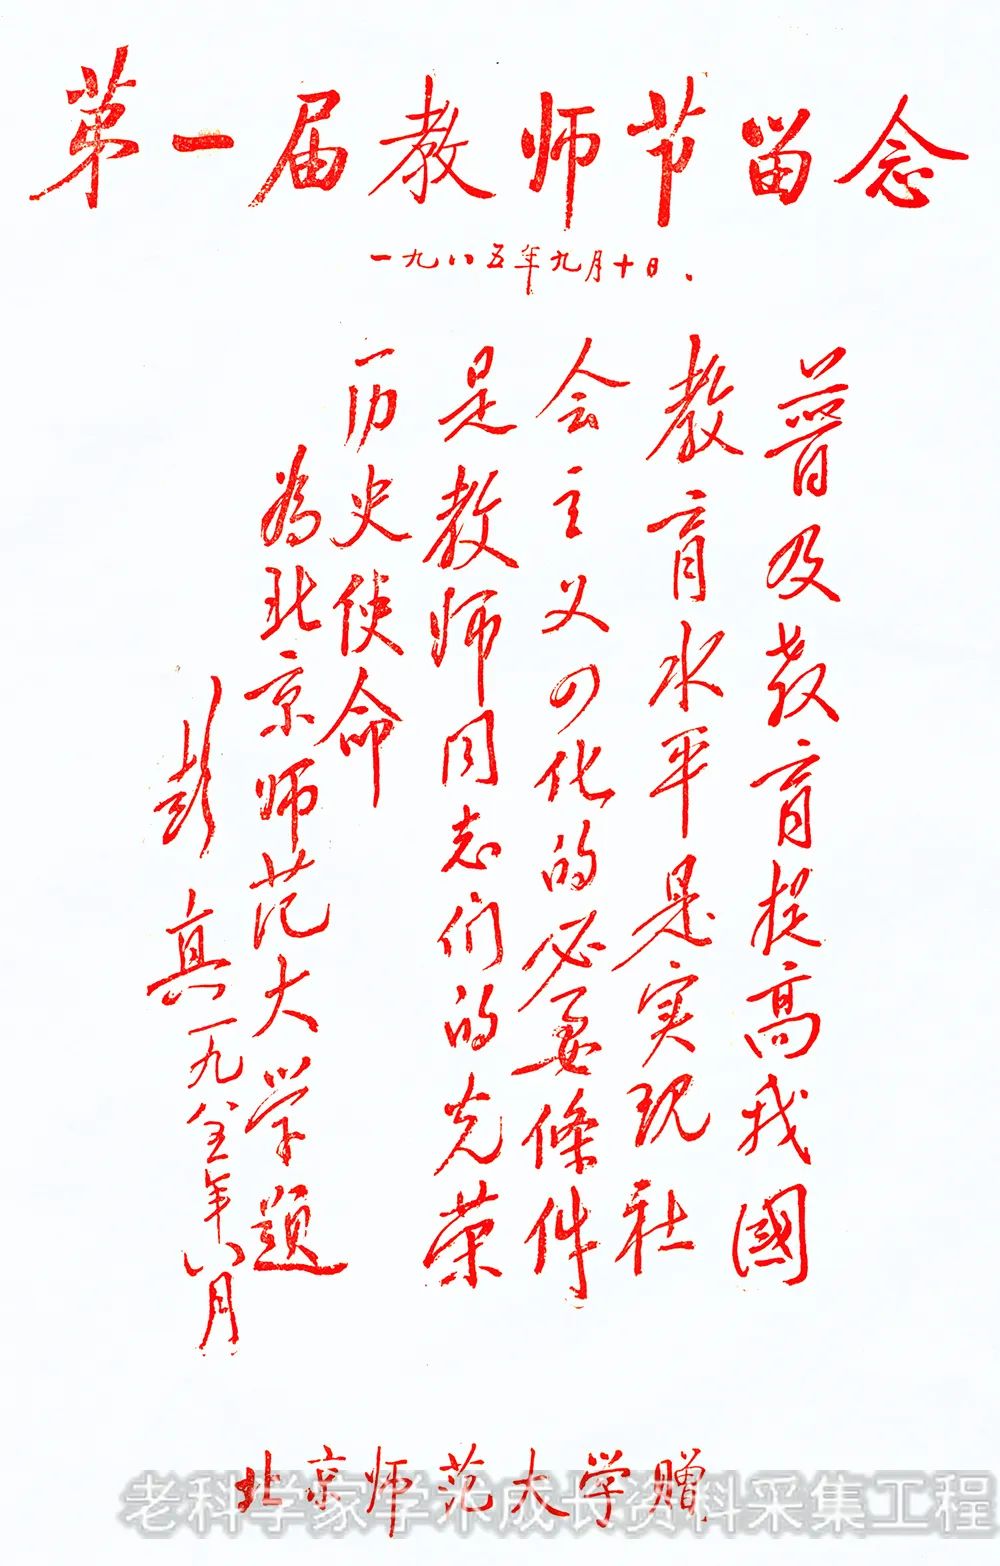 第一届教师节留念
一九八五年九月十日.
普及教育提高我國
教育水平是实现社
会主义四化的必要條件
是教师同志们的光荣
历史使命
为北京师范大学题
彭真一九八五年八月
北京师范大学赠
老科学家学术成长资料采集工程